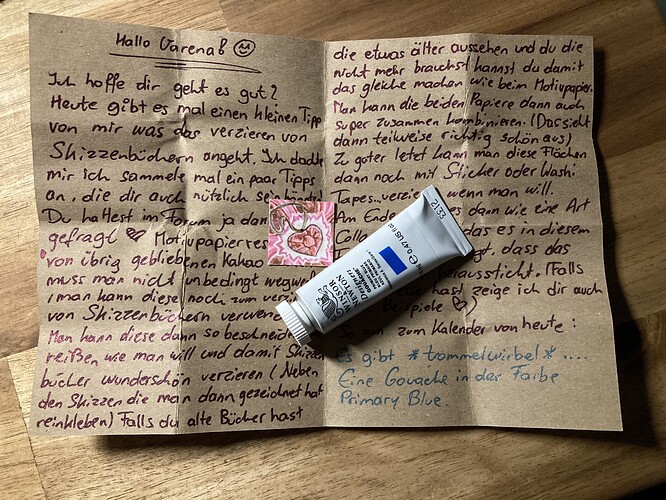 Hallo Varenaß
Ich hoffe dir geht es gut?
Heute gibt es mal einen kleinen Tipp
von mir was das verzieren von
Skizzenbüchern angeht. Ich dachte
mir ich sammele mal ein paar Tipps
an, die dir auch nützlich sein
Du hattest im Forum ja
gefragt Motivpapier
von übrig gebliebenen Kakao
muss man nicht unbedingt
man kann diese noch zum
von Skizzenbüchern
Man kann diese dann so
reißen wie man will und damit
bücher wunderschön verzieren (Neben
den Skizzen die man dann gezeichnet hat
reinkleben) Falls du alte Bücher hast
die etwas älter aussehen und du die
nicht mehr brauchst kannst du damit
das gleiche machen wie beim Motivpapier.
Man kann die beiden Papiere dann auch
super zusammen kombinieren. (Das sieht
dann teilweise richtig schön aus)
Zu guter letzt kann man diese Flächen
dann noch mit Sticker oder Washi
Tapes...verzie wenn man will.
Am Ende es dann wie eine Art
Colla das es in diesem
dass das
heraussticht. (Falls
hast zeige ich dir auch
Beispiele
nun zum Kalender von heute:
Es gibt *trommelwirbel* ....
Eine Gouache in der Farbe
Primary Blue.
WINSOR
NEWTON
Designers
0.47 US fl oz